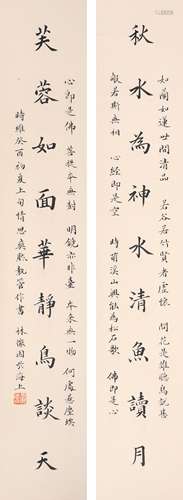 秋水為神水清魚讀月
如蘭如蓮世間品 若谷若竹賢者虛懷 問花是誰聽鳥說甚
般若斯無相 心經即是空 時有溪山興 能為松石歌 佛即是心
芙蓉如面華靜鳥談天
心即是佛 菩提本無樹 明鏡亦非臺 本來無一物 何處惹塵埃
時維癸酉初夏上旬情思奕然執管作書 林徽因於海上